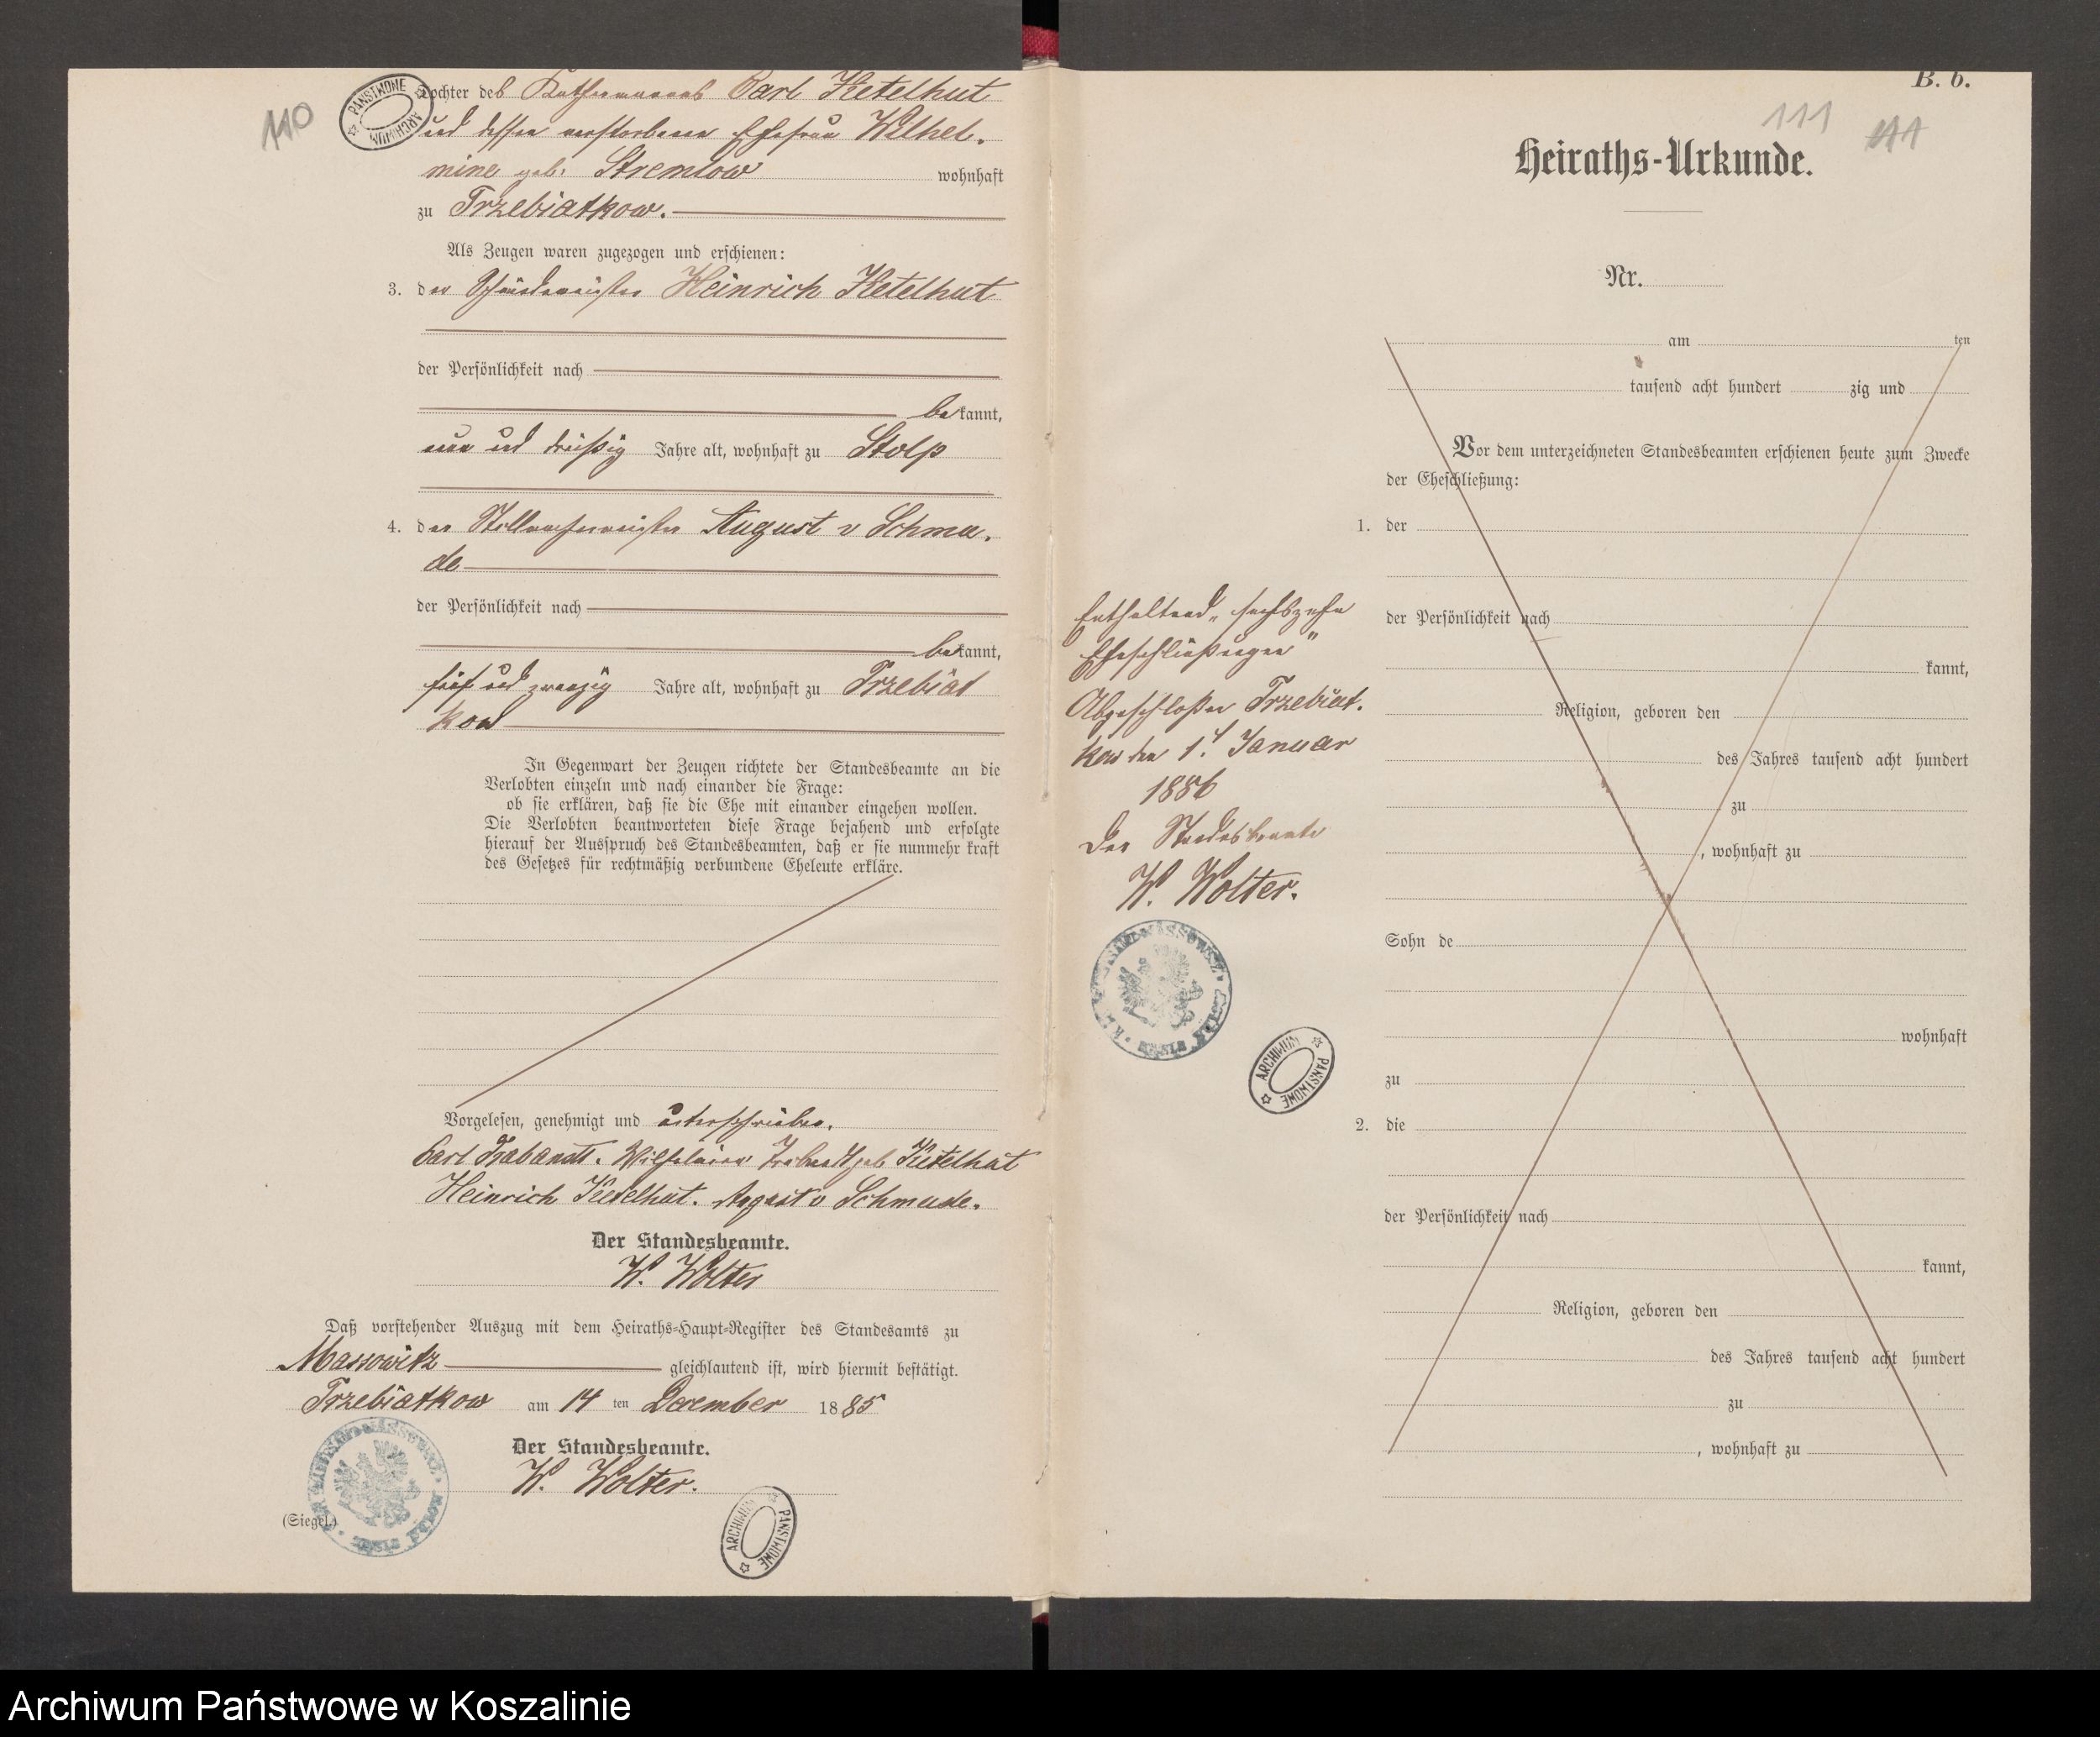 110
Tochter des Kathenmanns Carl Ketelhut
und dessen verstorbenen Ehefrau Wilhel-
mine geb. Stremlow wohnhaft
zu Trzebiatkow.
Als Zeugen waren zugezogen und erschienen:
3. der Heinrich Ketelhut
der Persönlichkeit nach
bekannt,
und dreißig Jahre alt, wohnhaft zu Stolp
4. der Stellmachermeister August v Schmu-
de
der Persönlichkeit nach
bekannt,
fünf und zwanzig Jahre alt, wohnhaft zu Trzebiat
kow
In Gegenwart der Zeugen richtete der Standesbeamte an die
Verlobten einzeln und nach einander die Frage:
ob sie erklären, daß sie die Ehe mit einander eingehen wollen.
Die Verlobten beantworteten diese Frage bejahend und erfolgte
hierauf der Ausspruch des Standesbeamten, daß er sie nunmehr kraft
des Gesetzes für rechtmäßig verbundene Eheleute erkläre.
Vorgelesen, genehmigt und unterschrieben.
Carl Trabandt. Wilhelmine Trabandt geb Ketelhut
Heinrich Ketelhut. August v Schmude.
Der Standesbeamte.
W. Wolter
Daß vorstehender Auszug mit dem Heiraths-Haupt-Register des Standesamts zu
Massowitz gleichlautend ist, wird hiermit bestätigt.
Trzebiatkow am 14 ten December 1885
Der Standesbeamte.
W. Wolter.
(Siegel.)
ARCHIWUM PAŃSTWOWE
ARCHIWUM PAŃSTWOWE
B. b.
111 111
Heiraths-Urkunde.
Nr.
am ten
tausend acht hundert zig und
Vor dem unterzeichneten Standesbeamten erschienen heute zum Zwecke
der Eheschließung:
1. der
der Persönlichkeit nach
kannt,
Religion, geboren den
des Jahres tausend acht hundert
zu
, wohnhaft zu
Sohn de
wohnhaft
zu
2. die
der Persönlichkeit nach
kannt,
Religion, geboren den
des Jahres tausend acht hundert
zu
, wohnhaft zu
Enthaltend „sechszehn
Eheschließungen"
Abgeschloßen Trzebiat-
kow den 1t. Januar
1886
Der Standesbeamte
W. Wolter.
ARCHIWUM PAŃSTWOWE
Archiwum Państwowe w Koszalinie